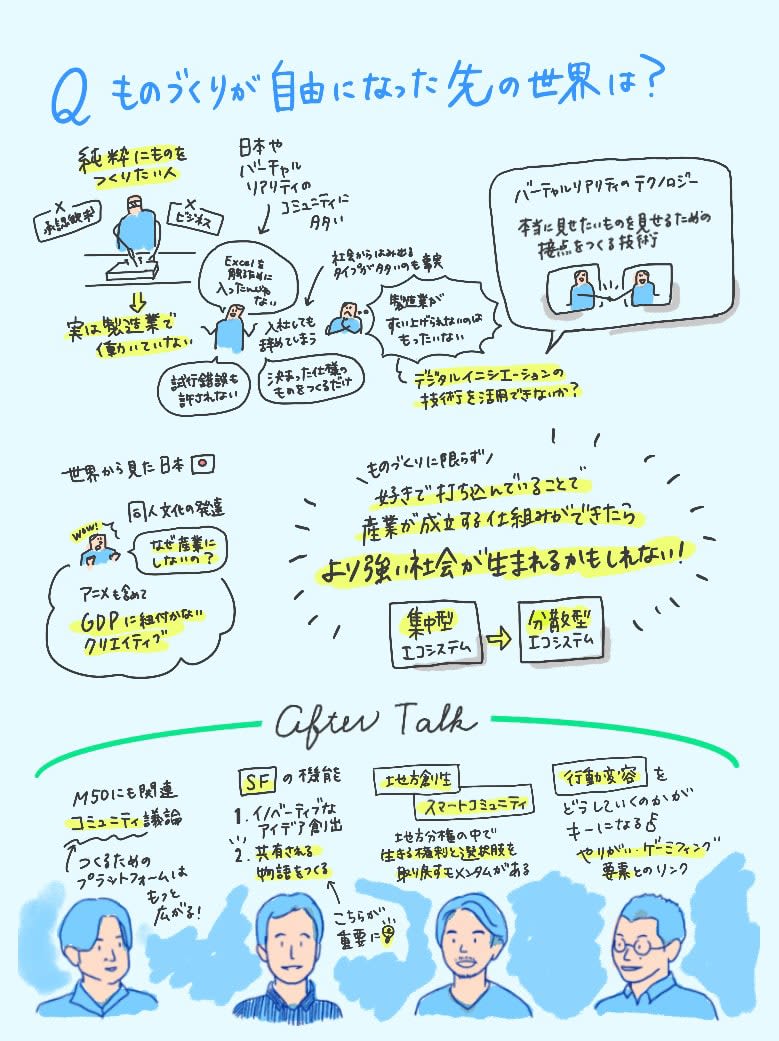 Q ものづくりが自由になった先の世界は?
純粋にものを
つくりたい人
×
承認欲求
×
ビジネス
実は製造業で
働いていない
日本や
バーチャル
リアリティの
コミュニティに
多い
Excelを
触るために
入ったんじゃ
ない
試行錯誤も
許されない
社会からはみ出る
タイプが多いのも事実
入社しても
辞めてしまう
決まった仕様の
ものをつくるだけ
製造業が
すい上げられないのは
もったいない
デジタルイニシエーションの
技術を活用できないか?
バーチャルリアリティのテクノロジー
本当に見せたいものを見せるための
接点をつくる技術
世界から見た日本
同人文化の発達
WOW!
なぜ産業に
しないの?
アニメも含めて
GDPに紐付かない
クリエイティブ
ものづくりに限らず
好きで打ち込んでいることで
産業が成立する仕組みができたら
より強い社会が生まれるかもしれない!
集中型
エコシステム
分散型
エコシステム
After Talk
M50にも関連
コミュニティ議論
つくるための
プラットフォームは
もっと
広がる!
SFの機能
1. イノベーティブな
アイデア創出
2. 共有される
物語をつくる
こちらが
重要に
地方創生
スマートコミュニティ
地方分権の中で
生きる権利と選択肢を
取り戻すモメンタムがある
行動変容を
どうしていくのかが
キーになる
やりがい・ゲーミフィング
要素とのリンク